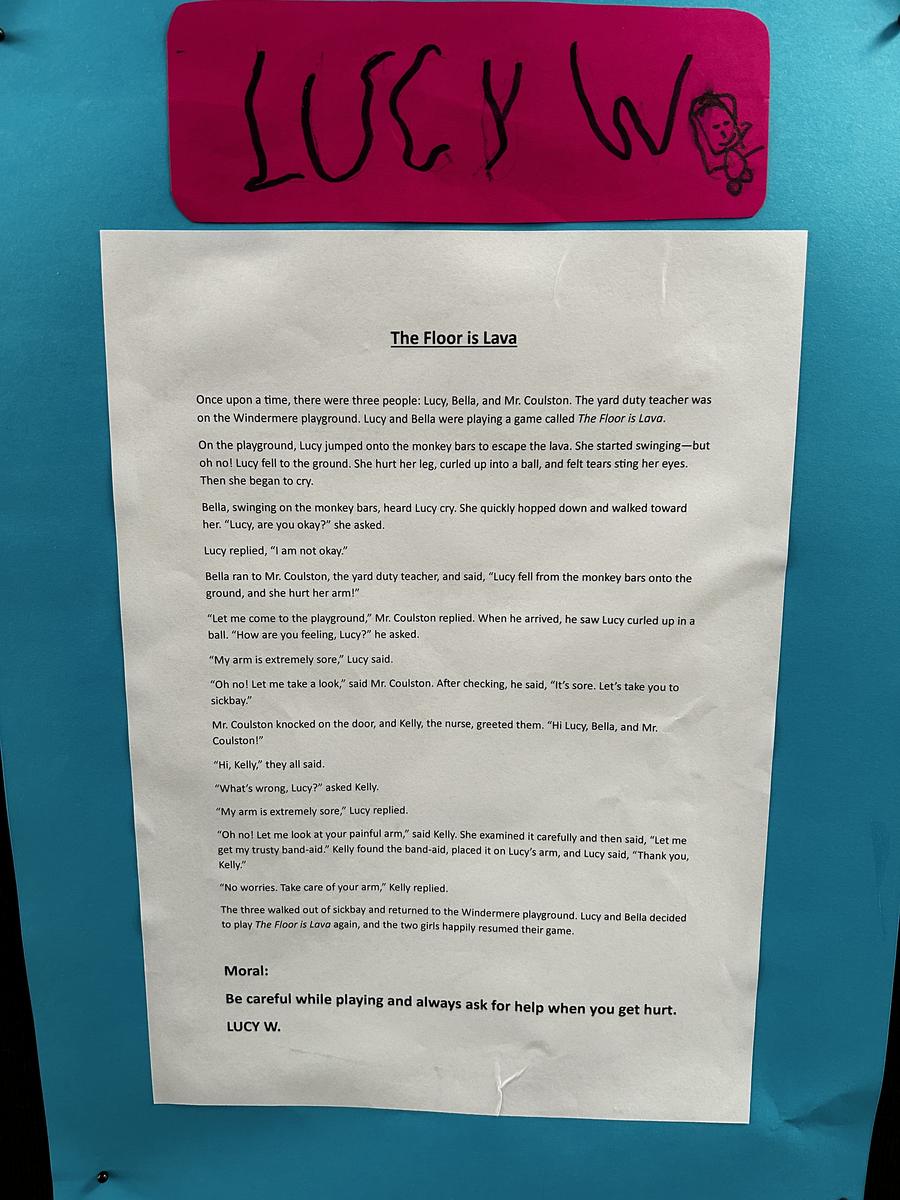 LUCY W
The Floor is Lava
Once upon a time, there were three people: Lucy, Bella, and Mr. Coulston. The yard duty teacher was
on the Windermere playground. Lucy and Bella were playing a game called The Floor is Lava.
On the playground, Lucy jumped onto the monkey bars to escape the lava. She started swinging—but
oh no! Lucy fell to the ground. She hurt her leg, curled up into a ball, and felt tears sting her eyes.
Then she began to cry.
Bella, swinging on the monkey bars, heard Lucy cry. She quickly hopped down and walked toward
her. “Lucy, are you okay?” she asked.
Lucy replied, “I am not okay.”
Bella ran to Mr. Coulston, the yard duty teacher, and said, “Lucy fell from the monkey bars onto the
ground, and she hurt her arm!”
“Let me come to the playground,” Mr. Coulston replied. When he arrived, he saw Lucy curled up in a
ball. “How are you feeling, Lucy?” he asked.
“My arm is extremely sore,” Lucy said.
“Oh no! Let me take a look,” said Mr. Coulston. After checking, he said, “It’s sore. Let’s take you to
sickbay.”
Mr. Coulston knocked on the door, and Kelly, the nurse, greeted them. “Hi Lucy, Bella, and Mr.
Coulston!”
“Hi, Kelly,” they all said.
“What’s wrong, Lucy?” asked Kelly.
“My arm is extremely sore,” Lucy replied.
“Oh no! Let me look at your painful arm,” said Kelly. She examined it carefully and then said, “Let me
get my trusty band-aid.” Kelly found the band-aid, placed it on Lucy’s arm, and Lucy said, “Thank you,
Kelly.”
“No worries. Take care of your arm,” Kelly replied.
The three walked out of sickbay and returned to the Windermere playground. Lucy and Bella decided
to play The Floor is Lava again, and the two girls happily resumed their game.
Moral:
Be careful while playing and always ask for help when you get hurt.
LUCY W.